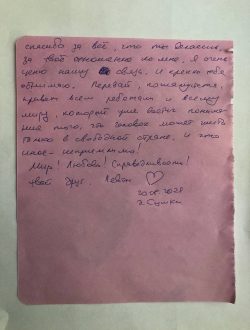 спасибо за всё, что ты делаешь,
за твоё отношение ко мне, я очень
ценю нашу связь. И крепко тебя
обнимаю. Передай, пожалуйста,
привет всем ребятам и всему
миру, который уже
того, что человек может жить
только в свободной стране, и что
иное - неприемлемо!
Мир! Любовь! Справедливость!
Твой друг, Леван ♡